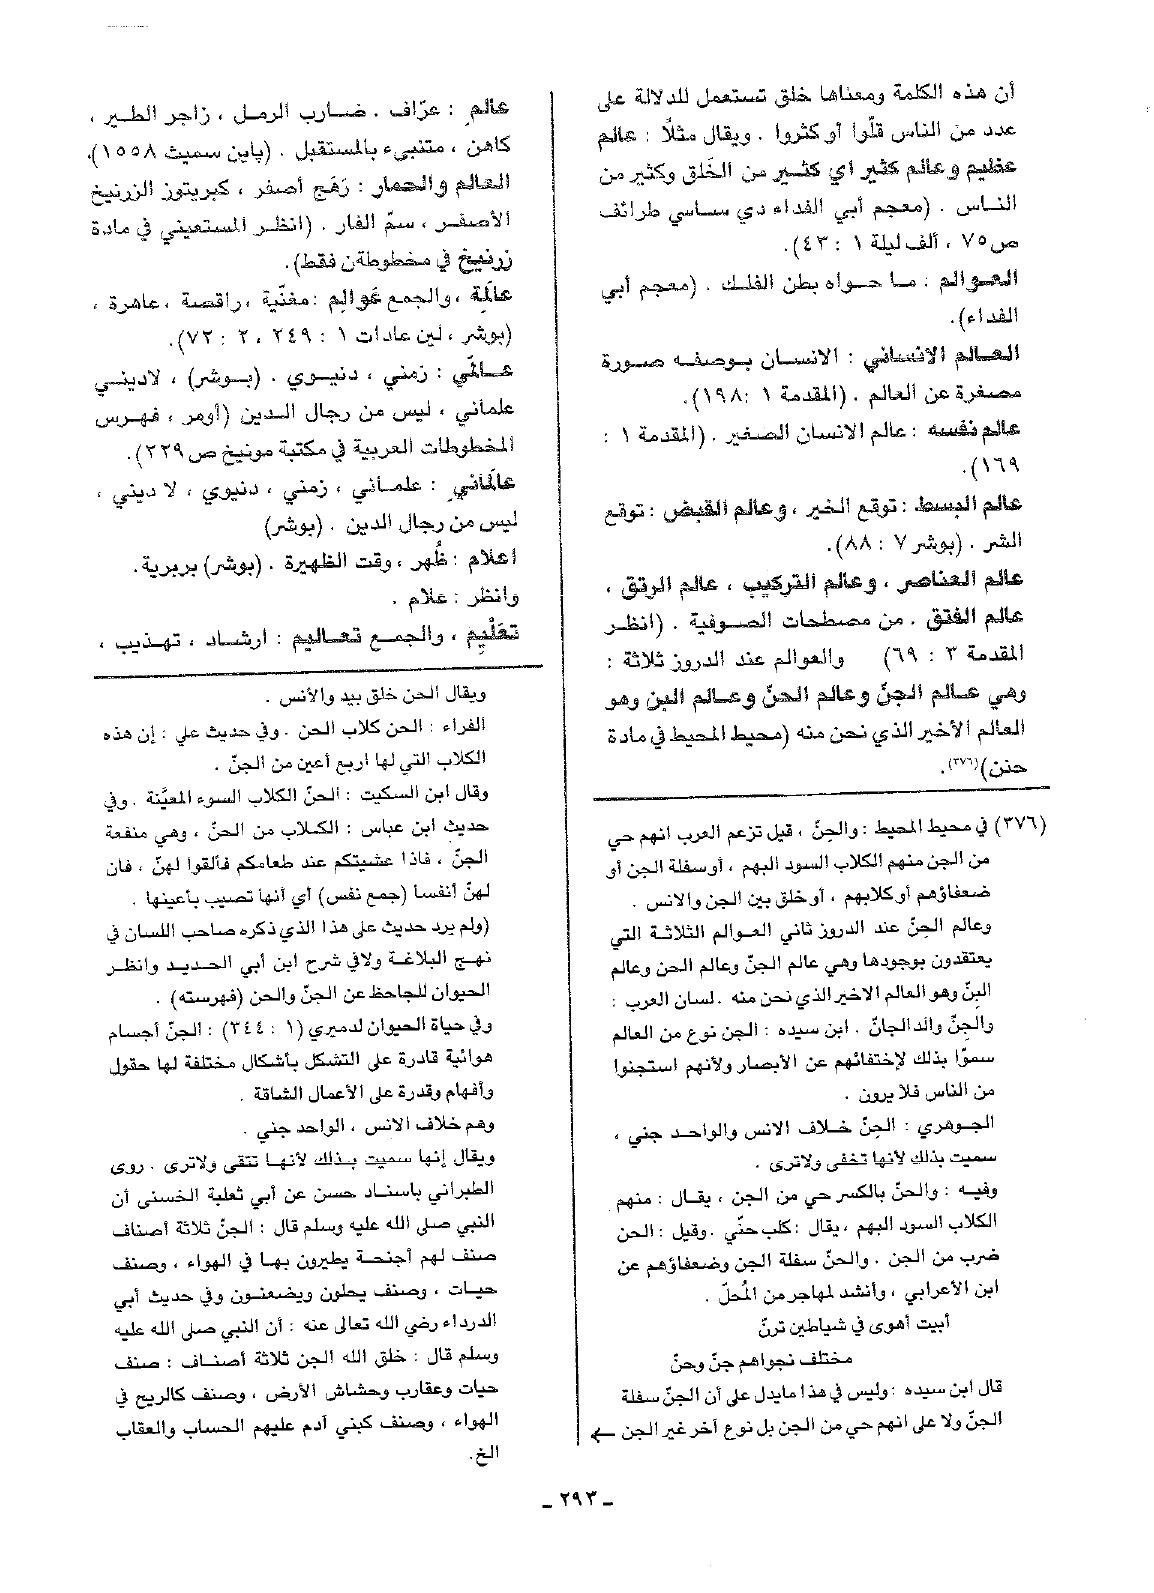 أن هذه الكلمة ومعناها خلق تستعمل للدلالة على
عدد من الناس قلّوا أو كثروا . ويقال مثلًا : عالم
عظيم وعالم كثير أي كثير من الخَلق وكثير من
الناس . (معجم أبي الفداء دي ساسي طرائف
ص٧٥ ، ألف ليلة ١ : ٤٣).
العوالم : ما حواه بطن الفلك . (معجم أبي
الفداء).
العالم الانساني : الانسان بوصفه صورة
مصغرة عن العالم . (المقدمة ١ :١٩٨).
عالم نفسه : عالم الانسان الصغير . (المقدمة ١ :
١٦٩).
عالم البسط : توقع الخير ، وعالم القبض : توقع
الشر . (بوشر ٧ : ٨٨).
عالم العناصر ، وعالم التركيب ، عالم الرتق ،
عالم الفتق . من مصطحات الصوفية . (انظر
المقدمة ٣ : ٦٩) والعوالم عند الدروز ثلاثة :
وهي عالم الجنّ وعالم الحنّ وعالم البن وهو
العالم الأخير الذي نحن منه (محيط المحيط في مادة
حنن)(٣٧٦).
(٣٧٦) في محيط المحيط : والحِنّ ، قيل تزعم العرب انهم حي
من الجن منهم الكلاب السود البهم ، أو سفلة الجن أو
ضعفاؤهم أو كلابهم ، أو خلق بين الجن والانس .
وعالم الحِنّ عند الدروز ثاني العوالم الثلاثة التي
يعتقدون بوجودها وهي عالم الجنّ وعالم الحن وعالم
البنّ وهو العالم الاخير الذي نحن منه . لسان العرب :
والجِنّ والد الجانّ . ابن سيده : الجن نوع من العالم
سموّا بذلك لإختفائهم عن الأبصار ولأنهم استجنوا
من الناس فلا يرون .
الجوهري : الجِنّ خلاف الانس والواحد جني ،
سميت بذلك لأنها تخفى ولاترى .
وفيه : والحنّ بالكسر حي من الجن ، يقال : منهم
الكلاب السود البهم ، يقال : كلب حنّي . وقيل : الحن
ضرب من الجن . والحنّ سفلة الجن وضعفاؤهم عن
ابن الأعرابي ، وأنشد لمهاجر من المُحلّ .
أبيت أهوى في شياطين ترنّ
مختلف نجواهم جنّ وحنّ
قال ابن سيده : وليس في هذا مايدل على أن الحِنّ سفلة
الجنّ ولا على انهم حي من الجن بل نوع آخر غير الجن ←
عالم : عرّاف . ضارب الرمل ، زاجر الطير ،
كاهن ، متنبيء بالمستقبل . (باين سميث ١٥٥٨).
العالم والحمار : رَهَج أصفر ، كبريتوز الزرنيخ
الأصفر ، سمّ الفار . (انظر المستعيني في مادة
زرنيخ في مخطوطة ن فقط).
عالمة ، والجمع عَوالِم : مغنّية ، راقصة ، عاهرة ،
(بوشر ، لين عادات ١ : ٢٤٩ ، ٢ : ٧٢).
عالميّ : زمني ، دنيوي . (بوشر) ، لاديني
علماني ، ليس من رجال الدين (أومر ، فهرس
المخطوطات العربية في مكتبة مونيخ ص ٢٢٩).
عالماني : علماني ، زمني ، دنيوي ، لا ديني ،
ليس من رجال الدين . (بوشر)
اعلام : ظُهر ، وقت الظهيرة . (بوشر) بربرية .
وانظر : علام .
تعْليم ، والجمع تعاليم : ارشاد ، تهذيب ،
ويقال الحن خلق بيد والأنس .
الفراء : الحن كلاب الحن . وفي حديث علي : إن هذه
الكلاب التي لها اربع أعين من الجنّ .
وقال ابن السكيت : الحنّ الكلاب السوء المعيَّنة . وفي
حديث ابن عباس : الكلاب من الحنّ ، وهي منفعة
الجنّ ، فاذا عشيتكم عند طعامكم فألقوا لهنّ ، فان
لهنّ أنفسا (جمع نفس) أي أنها تصيب بأعينها .
(ولم يرد حديث على هذا الذي ذكره صاحب اللسان في
نهج البلاغة ولافي شرح ابن أبي الحديد وانظر
الحيوان للجاحظ عن الجنّ والحن (فهرسته) .
وفي حياة الحيوان لدميري (١ : ٢٤٤) : الجنّ أجسام
هوائية قادرة على التشكل بأشكال مختلفة لها حقول
وأفهام وقدرة على الأعمال الشاقة .
وهم خلاف الانس ، الواحد جني .
ويقال إنها سميت بذلك لأنها تتقى ولاترى . روى
الطبراني باسناد حسن عن أبي ثعلبة الخسنى أن
النبي صلى الله عليه وسلم قال : الجنّ ثلاثة أصناف
صنف لهم أجنحة يطيرون بها في الهواء ، وصنف
حيات ، وصنف يحلون ويضعنون وفي حديث أبي
الدرداء رضي الله تعالى عنه : أن النبي صلى الله عليه
وسلم قال : خلق الله الجن ثلاثة أصناف : صنف
حيات وعقارب وحشاش الأرض ، وصنف كالريح في
الهواء ، وصنف كبني آدم عليهم الحساب والعقاب
الخ .
ـ ٢٩٣ ـ